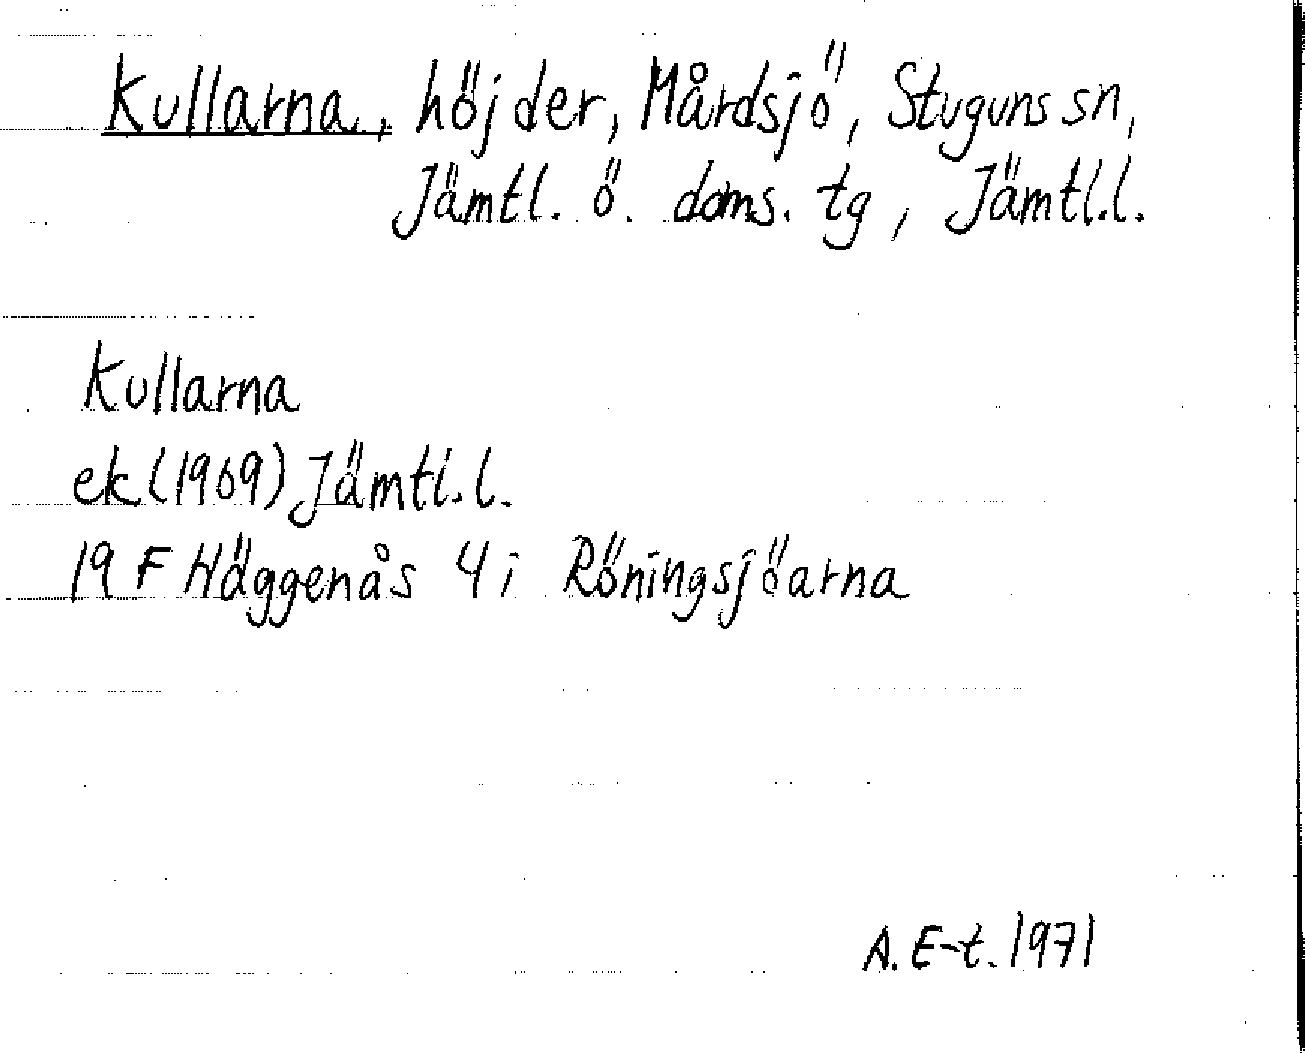 Kullarna, höjder, Mårdsjö, Stuguns sn,
Jämtl. ö. doms. tg, Jämtl.l.
Kullarna
ek (1969) Jämtl.l.
19 F Häggenås 4 i Röningsjöarna
A. E-t. 1971